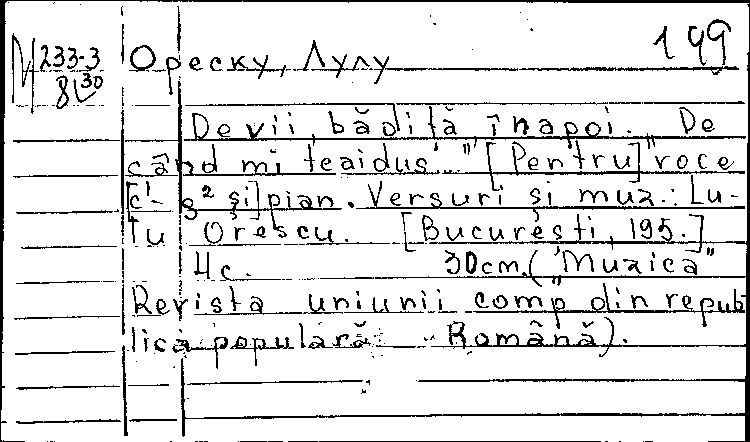 199
М 233-3
8[30
Ореску, Лулу
De vii, bădiță, înapoi. „De
când mi teaidus..." [Pentru] voce
[c¹-g² și] pian. Versuri și muz.: Lu-
lu Orescu. [București, 195.]
4c. 30cm. („Muzica"
Revista uniunii comp din repub
lica populară Română).